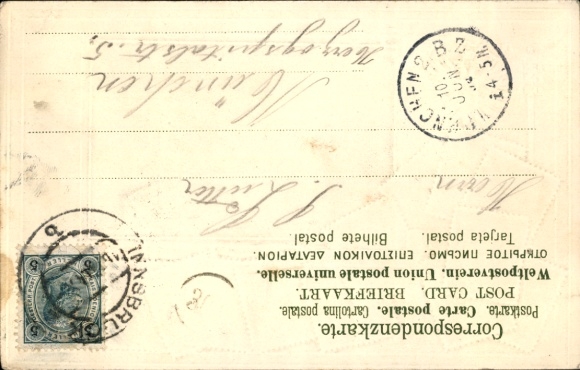 Correspondenzkarte.
Postkarte. Carte postale. Cartolina postale.
POST CARD. BRIEFKAART.
Weltpostverein. Union postale universelle.
ОТКРЫТОЕ ПИСЬМО. ΕΠΙΣΤΟΛΙΚΟΝ ΔΕΛΤΑΡΙΟΝ
Tarjeta postal. Bilhete postal.
INNSBRUCK
5 5
Herrn
München
Herzogspitalstr. 5,
MUENCHEN 2. B.Z.
10
JUN